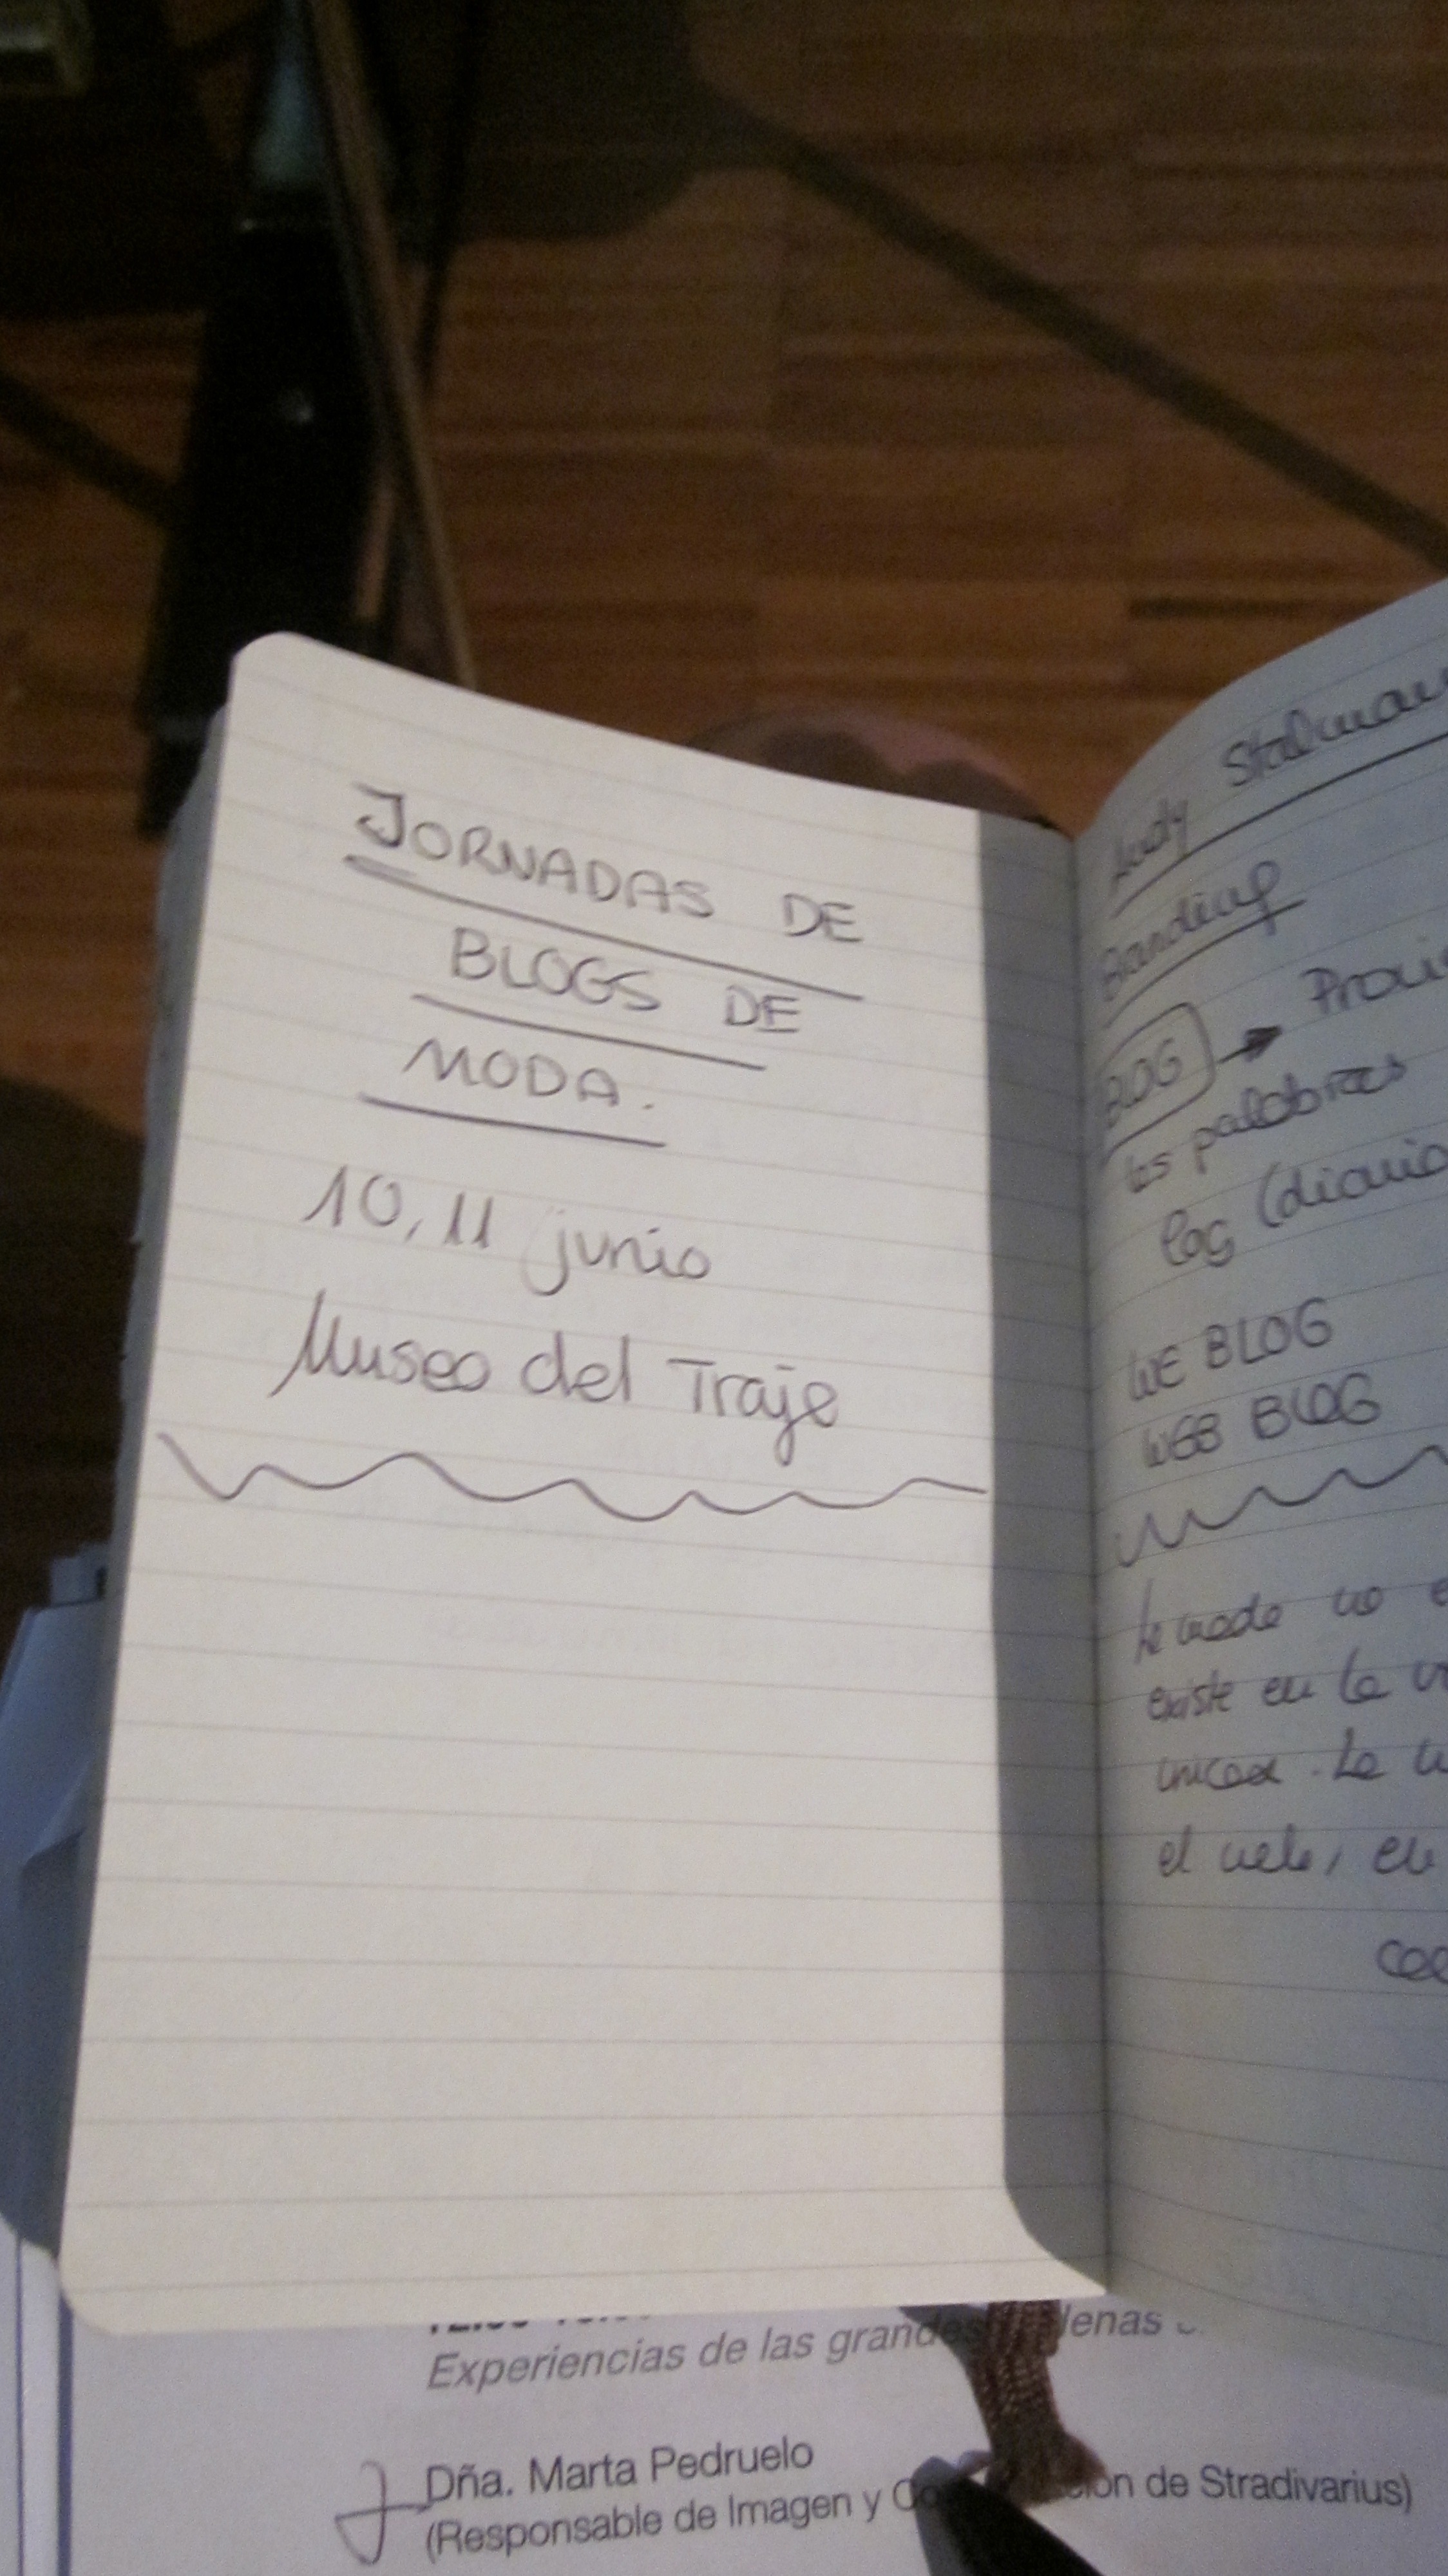 JORNADAS DE
BLOGS DE
MODA.
10, 11 junio
Museo del Traje
Andy Stalman
Branding
BLOG → Provie
las palabras
log (diario
WE BLOG
WEB BLOG
La moda no e
existe en la
La
el cielo, en
Experiencias de las grandes
Dña. Marta Pedruelo
(Responsable de Imagen y de Stradivarius)